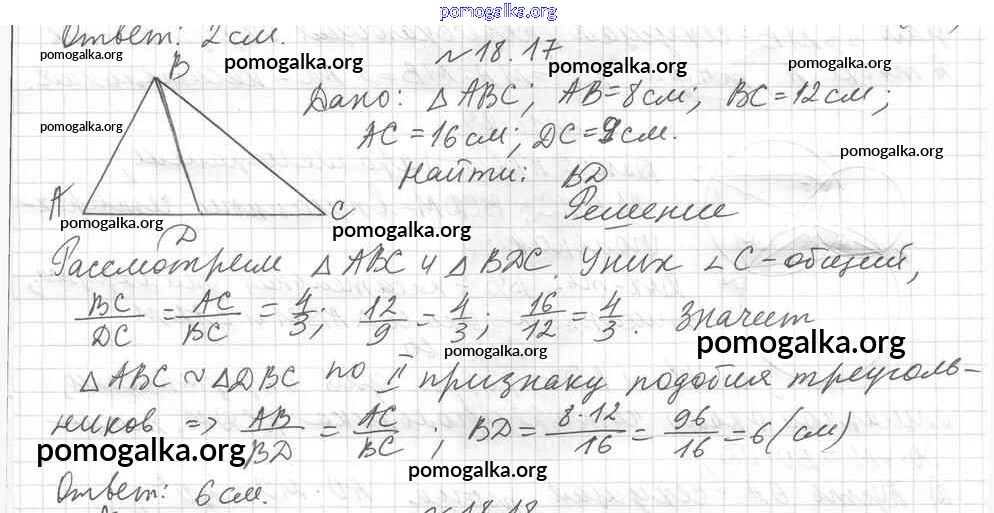 pomogalka.org
Ответ: 2 см.
№ 18.17
pomogalka.org pomogalka.org pomogalka.org pomogalka.org
B
Дано: △ ABC; AB = 8 см; BC = 12 см;
pomogalka.org
AC = 16 см; DC = 9 см.
pomogalka.org
Найти: BD
A C
pomogalka.org pomogalka.org
Решение
D
Рассмотрим △ ABC и △ BDC. У них ∠ C – общий,
BC/DC = AC/BC = 4/3; 12/9 = 4/3; 16/12 = 4/3. Значит
pomogalka.org pomogalka.org
△ ABC ~ △ DBC по II признаку подобия треуголь-
ников => AB/BD = AC/BC; BD = 8·12/16 = 96/16 = 6 (см)
pomogalka.org pomogalka.org
Ответ: 6 см.
№ 18.18